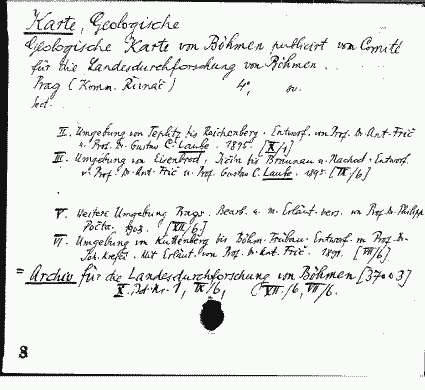 Karte, Geologische
Geologische Karte von Böhmen publicirt von Comité
für die Landesdurchforschung von Böhmen.
Prag (Komm. Řivnáč) 4°,
II. Umgebung von Teplitz bis Reichenberg. Entworf. von Prof. Dr. Ant. Frič
u. Prof. Dr. Gustav C. Laube. 1895. [X/1]
III. Umgebung von Eisenbrod, bis Braunau u. Nachod. Entworf.
v. Prof. Dr. Ant. Frič u. Prof. Gustav C. Laube. 1895 [IX/6]
V. Weitere Umgebung Prags. Bearb. u. m. Erläut. vers. von Prof. Dr. Philipp
Počta. 1903. [XII/6]
VI. Umgebung von Kuttenberg bis Böhm. Trübau. Entworf. v. Prof. Dr.
Joh. Krejčí. Mit Erläut. von Prof. Dr. Ant. Frič. 1891. [VII/6]
= Archiv für die Landesdurchforschung von Böhmen [37003]
X. Bd. Nr. 1, IX/6, (XII./6, VII/6.
8